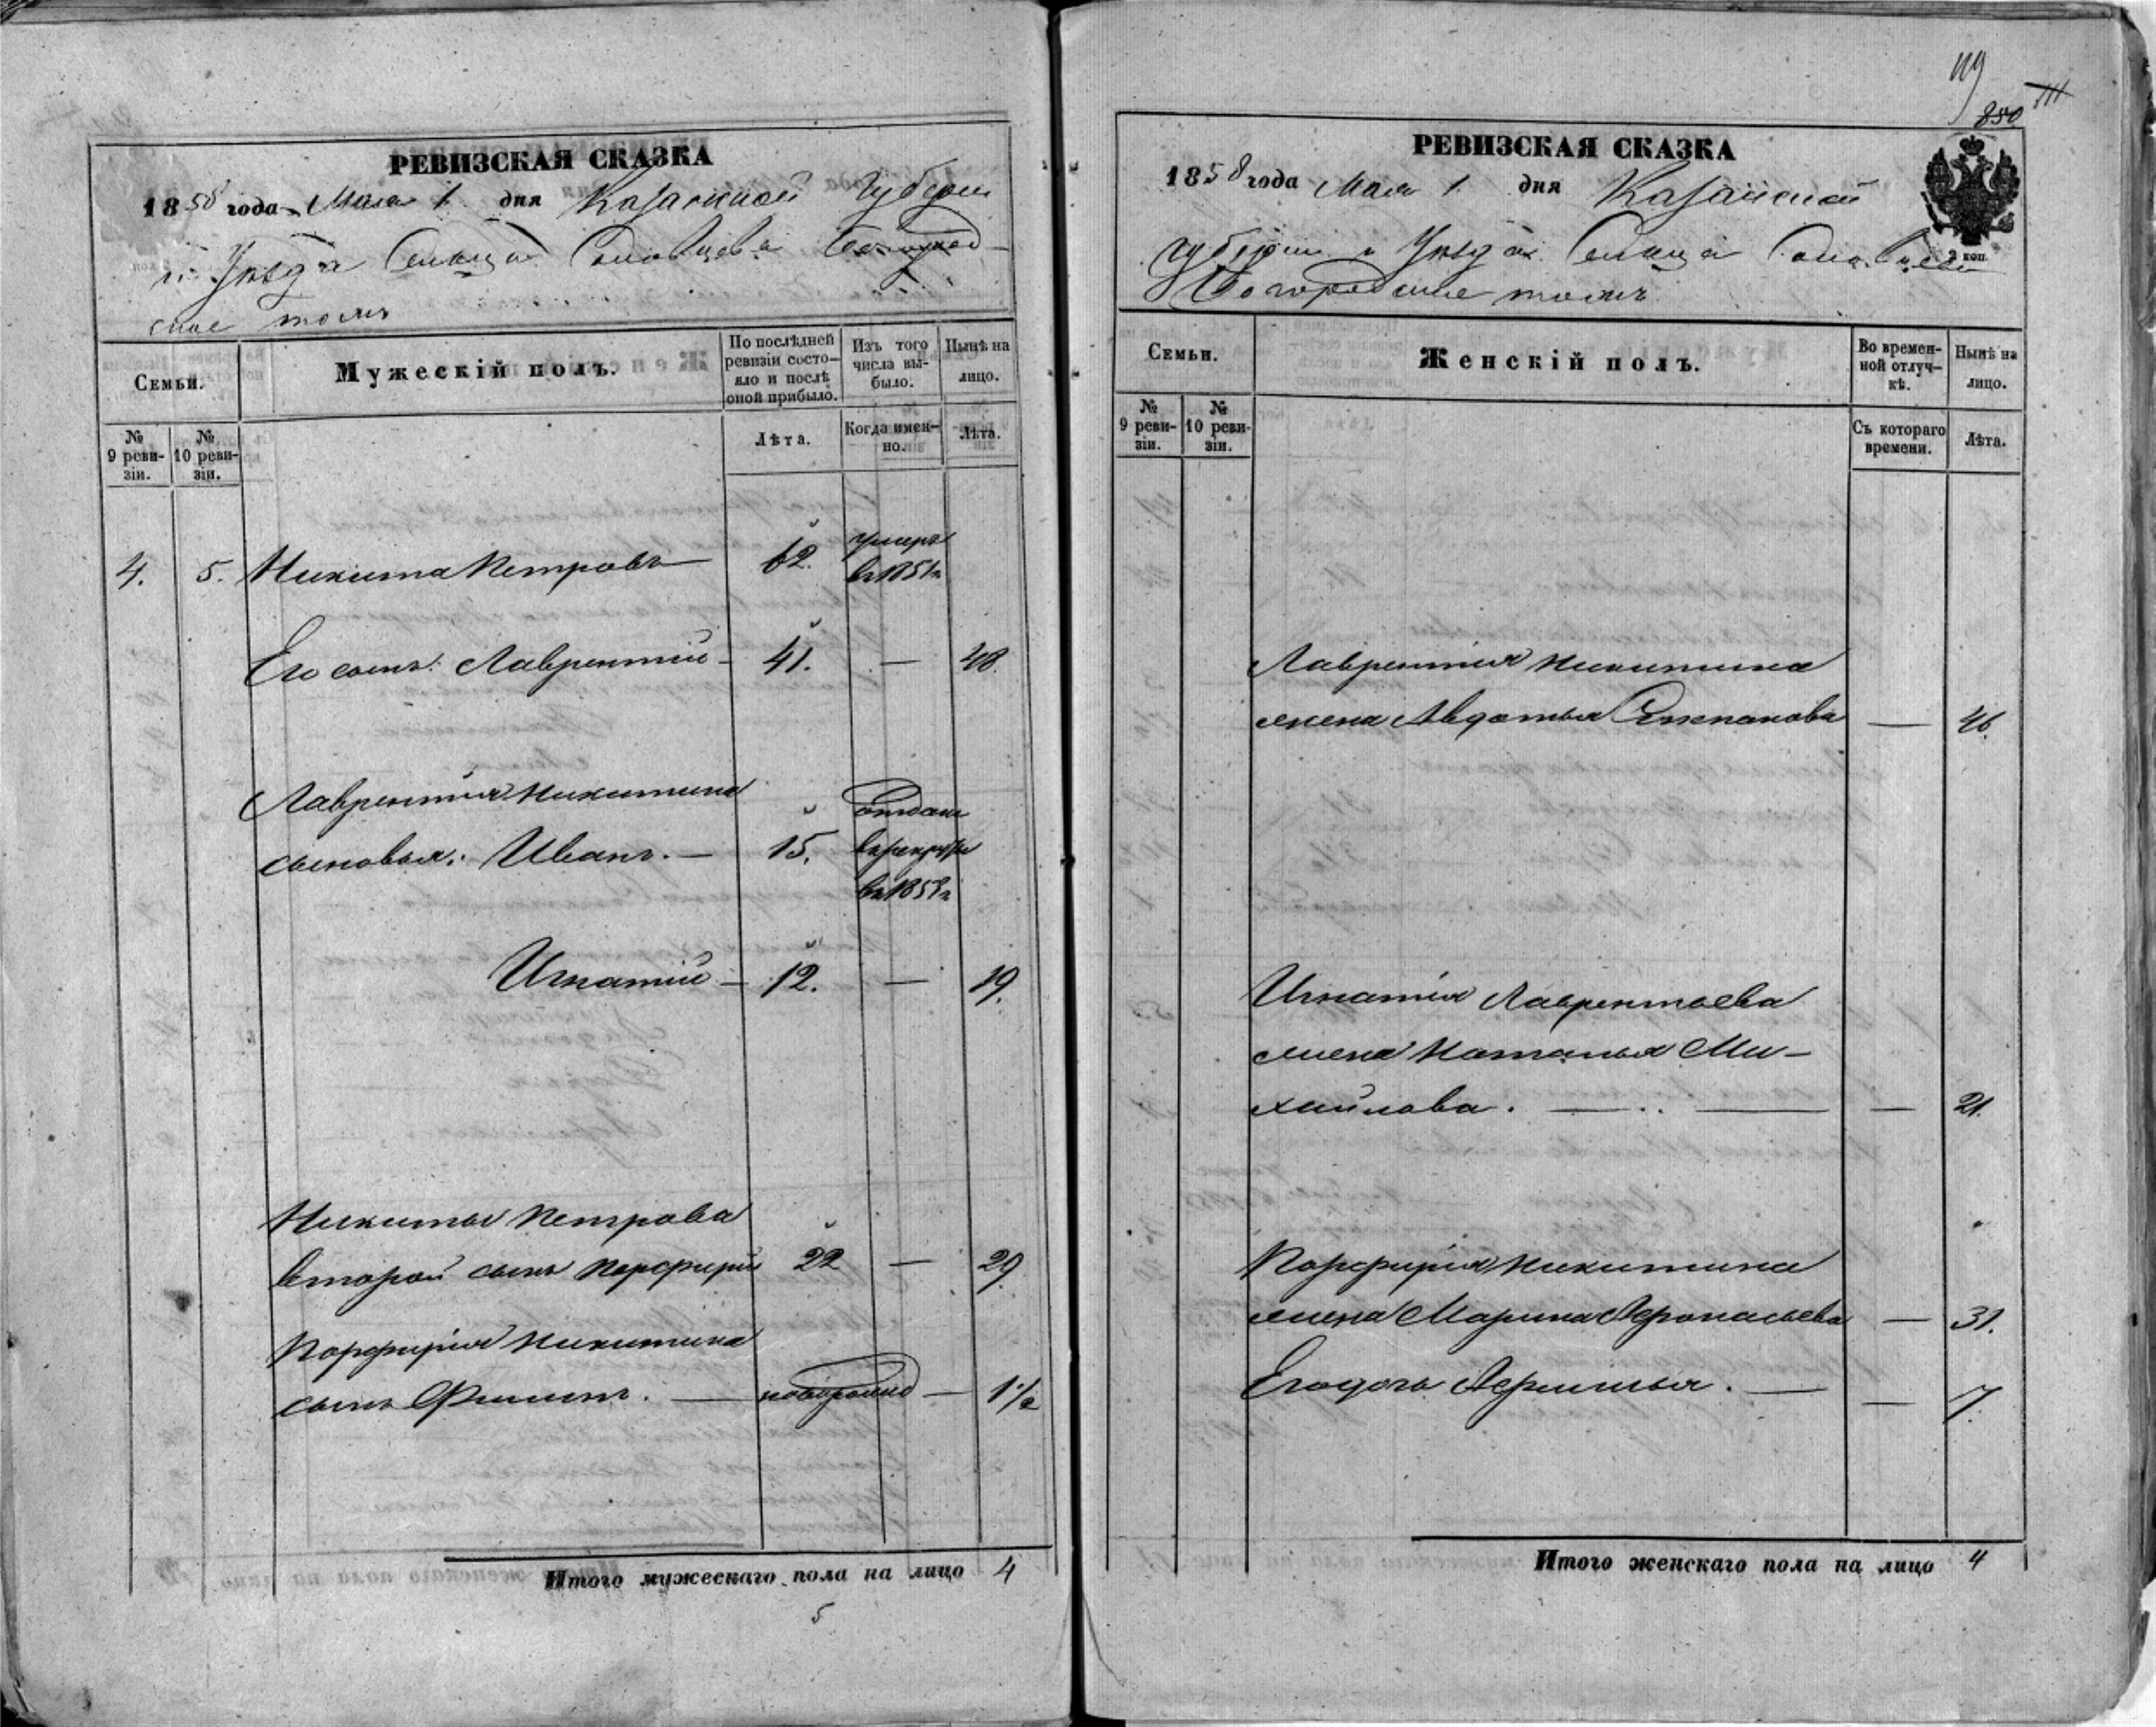 РЕВИЗСКАЯ СКАЗКА
1858 года Мая 1 дня Казанской Губерніи
и Уѣзда Сельца Соловцова Богород-
ское тожъ
Семьи.
Мужескій полъ.
По послѣдней ревизіи состо-
яло и послѣ оной прибыло.
Изъ того числа вы-
было.
Нынѣ на лицо.
№ 9 реви-
зіи.
№ 10 реви-
зіи.
Лѣта.
Когда имен-
но.
Лѣта.
4. 5. Никита Петровъ 62. умеръ
въ 1851г
Его сынъ: Лаврентій — 41. — 48.
Лаврентія Никитина
сыновья: Иванъ. — 15. отданъ
въ рекруты
въ 1853г
Игнатій — 12. — 19.
Никиты Петрова
второй сынъ Порфирій 22 — 29.
Порфирія Никитина
сынъ Филипъ. — новорожд — 1 1/2
Итого мужескаго пола на лицо 4
5
119
850
РЕВИЗСКАЯ СКАЗКА
1858 года Мая 1 дня Казанской
Губерніи и Уѣзда Сельца Соловцова
Богородское тожъ
2 коп.
Семьи.
Женскій полъ.
Во времен-
ной отлуч-
кѣ.
Нынѣ на лицо.
№ 9 реви-
зіи.
№ 10 реви-
зіи.
Съ котораго времени.
Лѣта.
Лаврентія Никитина
жена Авдотья Степанова — 46.
Игнатія Лаврентьева
жена Наталья Ми-
хайлова. — — 21.
Порфирія Никитина
жена Марина Афонасьева — 31.
Его дочь Афимья. — — 7.
Итого женскаго пола на лицо 4